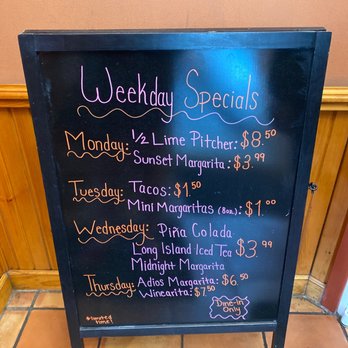 Weekday Specials
Monday: 1/2 Lime Pitcher: $8.50
Sunset Margarita: $3.99
Tuesday: Tacos: $1.50
Mini Margaritas (8oz.) $1.00
Wednesday: Piña Colada
Long Island Iced Tea $3.99
Midnight Margarita
Thursday: Adios Margarita: $6.50
Winearita: $7.50
*limited time!
Dine-in Only